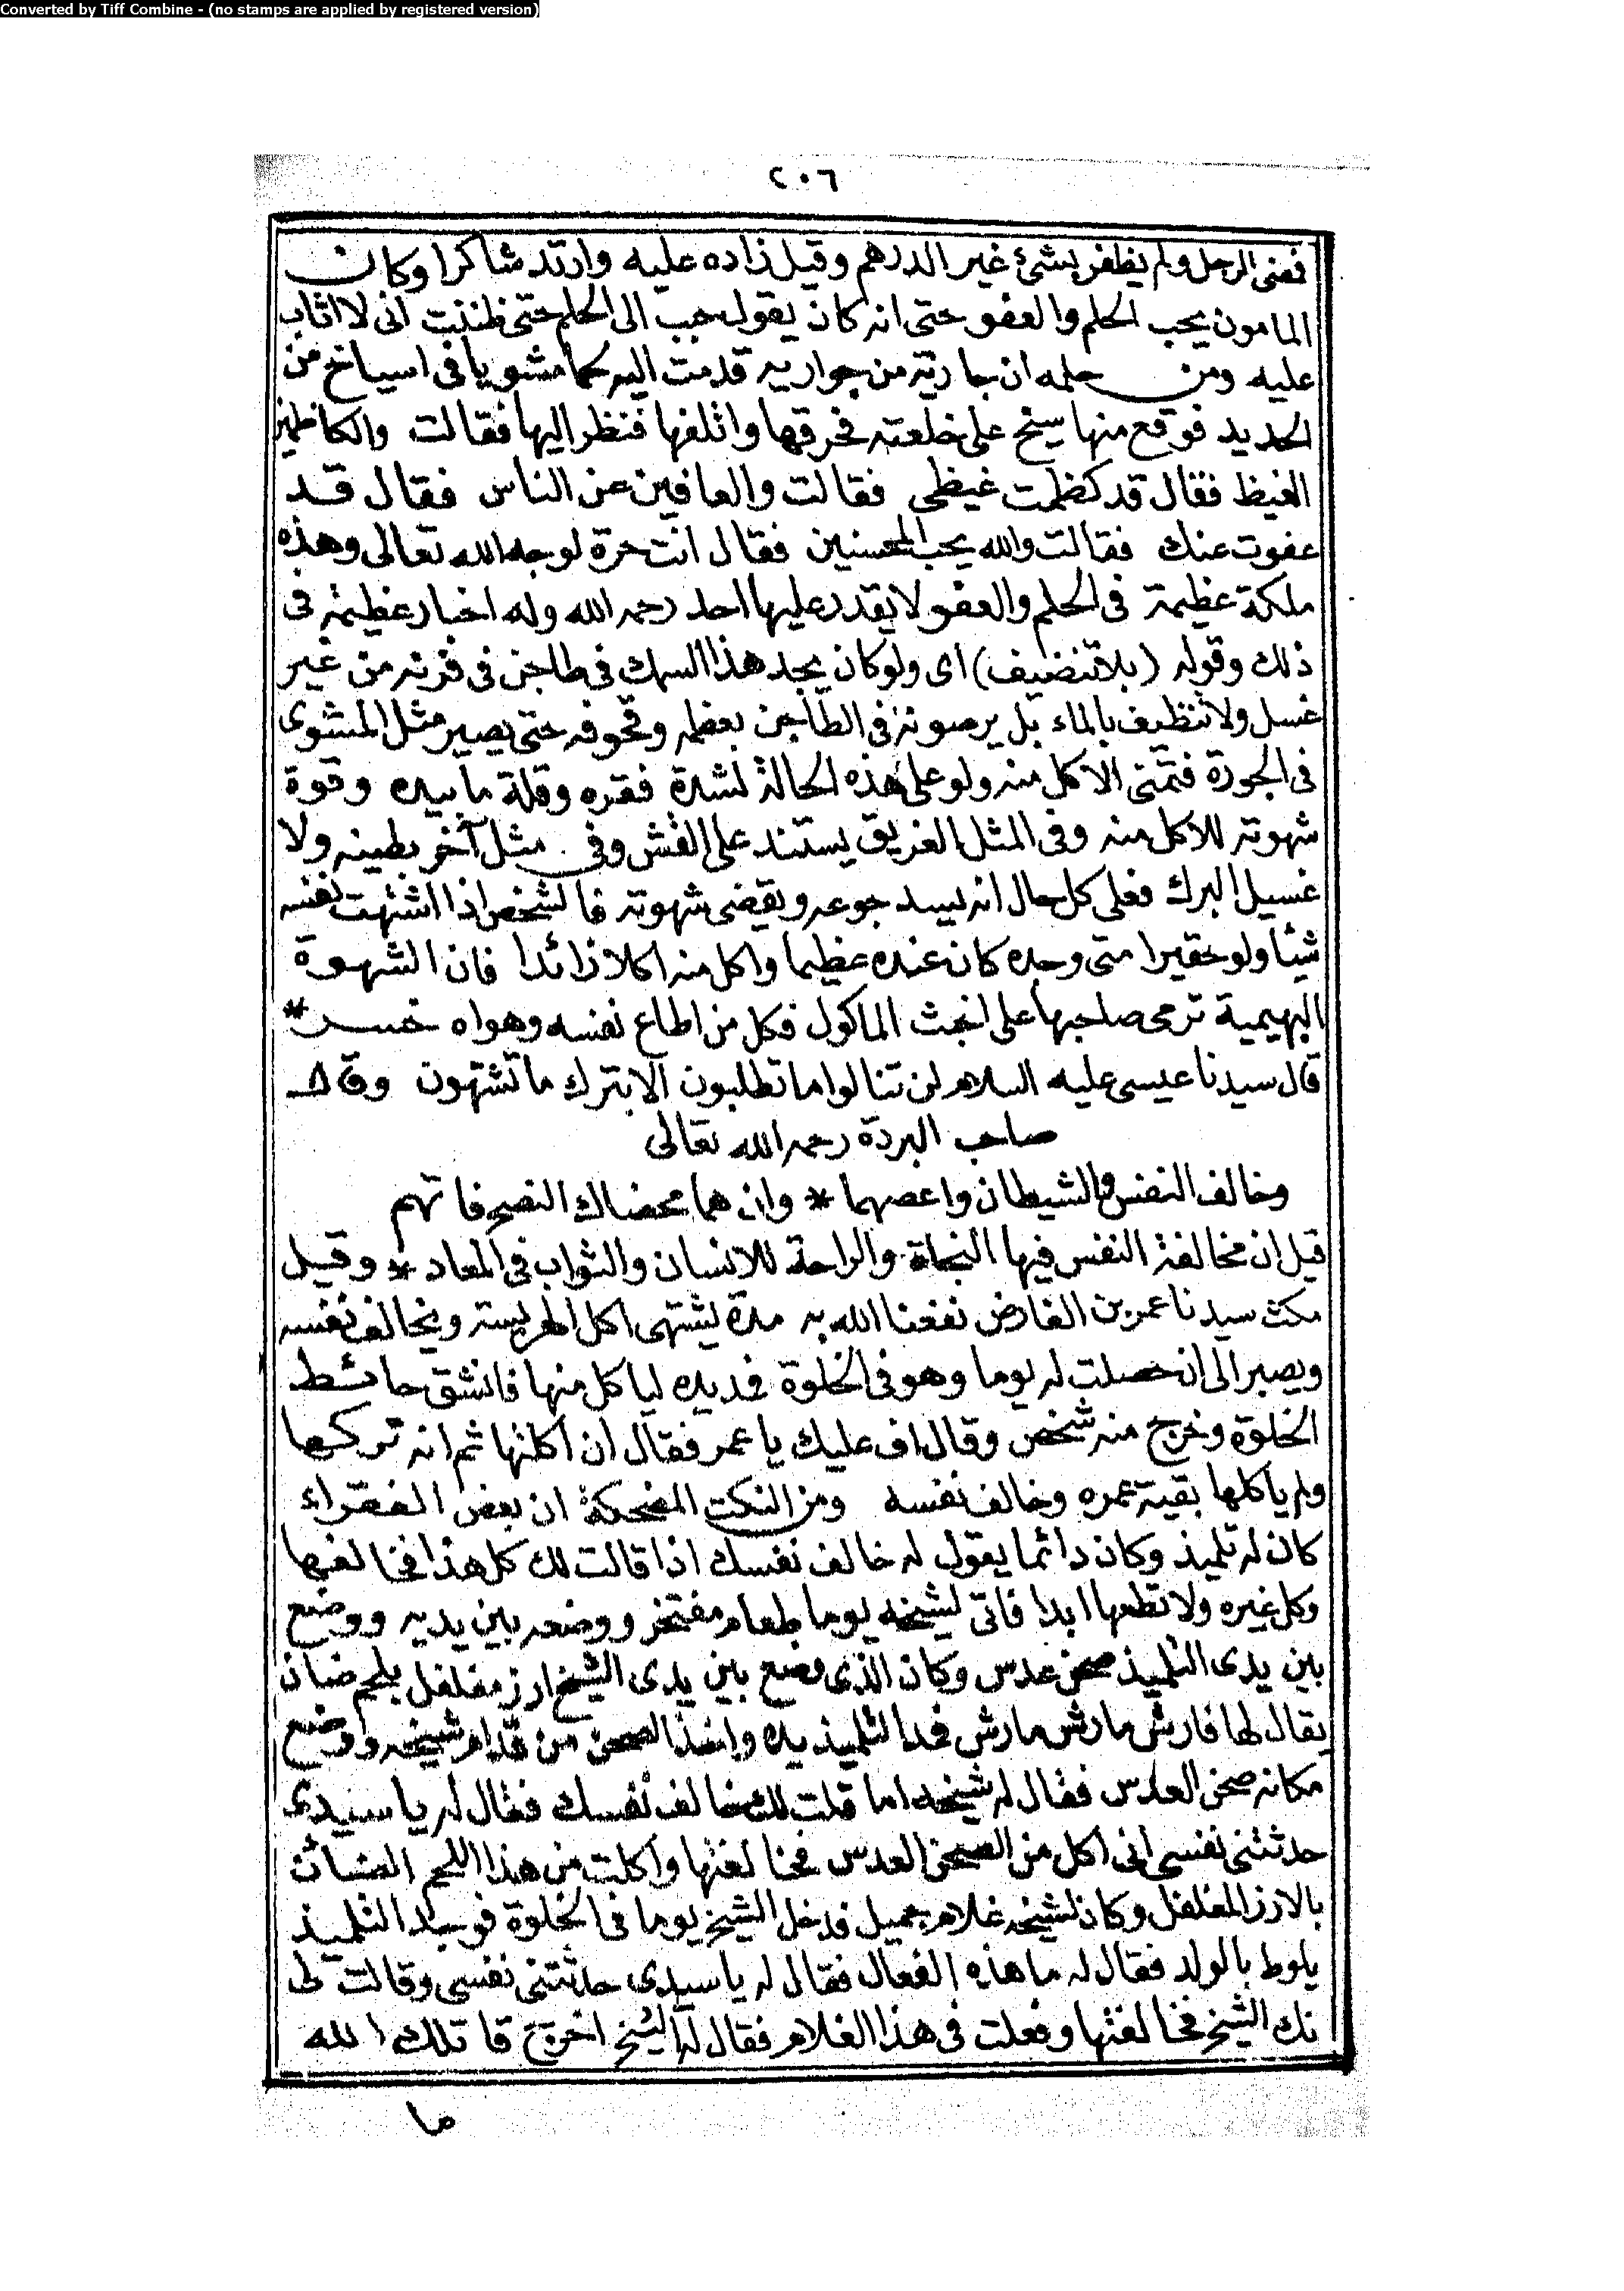 Converted by Tiff Combine - (no stamps are applied by registered version)
٢٠٦
فمضى الرجل ولم يظفر بشئ غير الدرهم وقيل زاده عليه وارتد شاكرا وكان
المامون يحب الحلم والعفو حتى انه كان يقول حبب الى الحلم حتى ظننت انى لا اثاب
عليه ومن حلمه ان جارية من جواريه قدمت اليه لحما مشويا فى اسياخ من
الحديد فوقع منها سيخ على خلعته فحرقها واتلفها فنظر اليها فقالت والكاظمين
الغيظ فقال قد كظمت غيظى فقالت والعافين عن الناس فقال قد
عفوت عنك فقالت والله يحب المحسنين فقال انت حرة لوجه الله تعالى وهذه
ملكة عظيمة فى الحلم والعفو لا يقدر عليها احد رحمه الله وله اخبار عظيمة فى
ذلك وقوله (بلا تنضيف) اى ولو كان يجد هذا السمك فى طاجن فى فرنه من غير
غسل ولا تنظيف بالماء بل يرصونه فى الطاجن بعظمه وقحوفه حتى يصير مثل المشوى
فى الجورة فتمنى الاكل منه ولو على هذه الحالة لشدة فقره وقلة ما بيده وقوة
شهوته للاكل منه وفى المثل الغريق يستند على القش وفى مثل آخر بطينه ولا
غسيل البرك فعلى كل حال انه يسد جوعه ويقضى شهوته فالشخص اذا اشتهت نفسه
شيئا ولو حقيرا متى وجده كان عنده عظيما واكل منه اكلا زائدا فان الشهوة
البهيمية ترمى صاحبها على اخبث الماكول فكل من اطاع نفسه وهواه خسر *
قال سيدنا عيسى عليه السلام لن تنالوا ما تطلبون الا بترك ما تشتهون وقال
صاحب البردة رحمه الله تعالى
وخالف النفس والشيطان واعصهما * وان هما محضاك النصح فاتهم
قيل ان مخالفة النفس فيها النجاة والراحة للانسان والثواب فى المعاد * وقيل
مكث سيدنا عمر بن الفارض نفعنا الله به مدة يشتهى اكل الهريسة ويخالف نفسه
ويصبر الى ان حصلت له يوما وهو فى الخلوة فمد يده لياكل منها فانشق حائط
الخلوة وخرج منه شخص وقال اف عليك يا عمر فقال ان اكلتها ثم انه تركها
ولم ياكلها بقية عمره وخالف نفسه ومن النكت المضحكة ان بعض الفقراء
كان له تلميذ وكان دائما يقول له خالف نفسك اذا قالت لك كل هذا فخالفها
وكل غيره ولا تطعها ابدا فاتى لشيخه يوما طعام مفتخر ووضعه بين يديه ووضع
بين يدى التلميذ صحن عدس وكان الذى وضع بين يدى الشيخ ارز مفلفل بلحم ضان
يقال لها فارش مارش مارش فمد التلميذ يده واخذ الصحن من قدام شيخه ووضع
مكانه صحن العدس فقال له شيخه اما قلت لك خالف نفسك فقال له يا سيدى
حدثتنى نفسى انى اكل من الصحن العدس فخالفتها واكلت من هذا اللحم الضان
بالارز المفلفل وكان لشيخه غلام جميل فدخل الشيخ يوما فى الخلوة فوجد التلميذ
يلوط بالولد فقال له ما هذه الفعال فقال له يا سيدى حدثتنى نفسى وقالت لى
نك الشيخ فخالفتها وفعلت فى هذا الغلام فقال له الشيخ اخرج قاتلك الله
ما